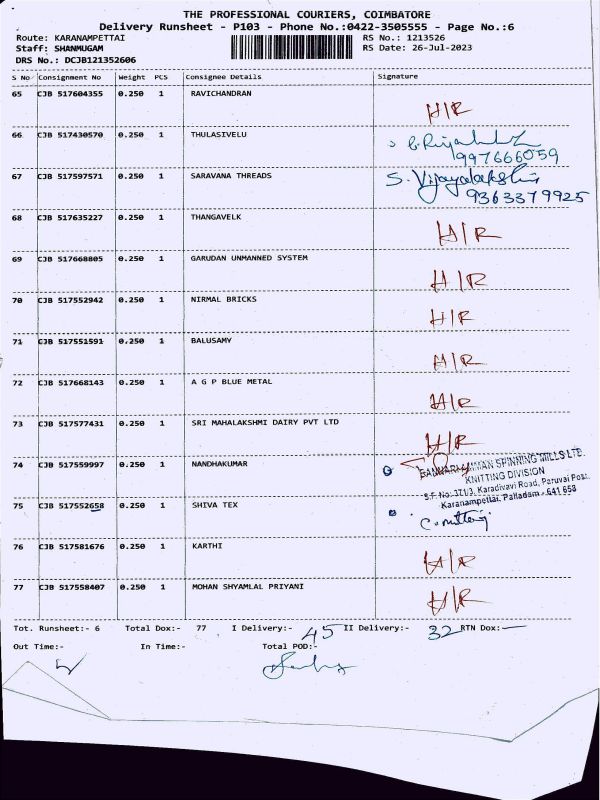 THE PROFESSIONAL COURIERS, COIMBATORE
Delivery Runsheet - P103 - Phone No.:0422-3505555 - Page No.:6
Route: KARANAMPETTAI RS No.: 1213526
Staff: SHANMUGAM RS Date: 26-Jul-2023
DRS No.: DCJB121352606
S No Consignment No Weight PCS Consignee Details Signature
65 CJB 517604355 0.250 1 RAVICHANDRAN H/R
66 CJB 517430570 0.250 1 THULASIVELU
997666059
67 CJB 517597571 0.250 1 SARAVANA THREADS S. Vijayalakshmi
9363379925
68 CJB 517635227 0.250 1 THANGAVELK H/R
69 CJB 517668805 0.250 1 GARUDAN UNMANNED SYSTEM H/R
70 CJB 517552942 0.250 1 NIRMAL BRICKS H/R
71 CJB 517551591 0.250 1 BALUSAMY H/R
72 CJB 517668143 0.250 1 A G P BLUE METAL H/R
73 CJB 517577431 0.250 1 SRI MAHALAKSHMI DAIRY PVT LTD H/R
74 CJB 517559997 0.250 1 NANDHAKUMAR
BANNARI AMMAN SPINNING MILLS LTD.
KNITTING DIVISION
S.F. No: 371/3, Karadivavi Road, Paruvai Post,
Karanampettai, Palladam - 641 658
75 CJB 517552658 0.250 1 SHIVA TEX
76 CJB 517581676 0.250 1 KARTHI H/R
77 CJB 517558407 0.250 1 MOHAN SHYAMLAL PRIYANI H/R
Tot. Runsheet:- 6 Total Dox:- 77 I Delivery:- 45 II Delivery:- 32 RTN Dox:-
Out Time:- In Time:- Total POD:-